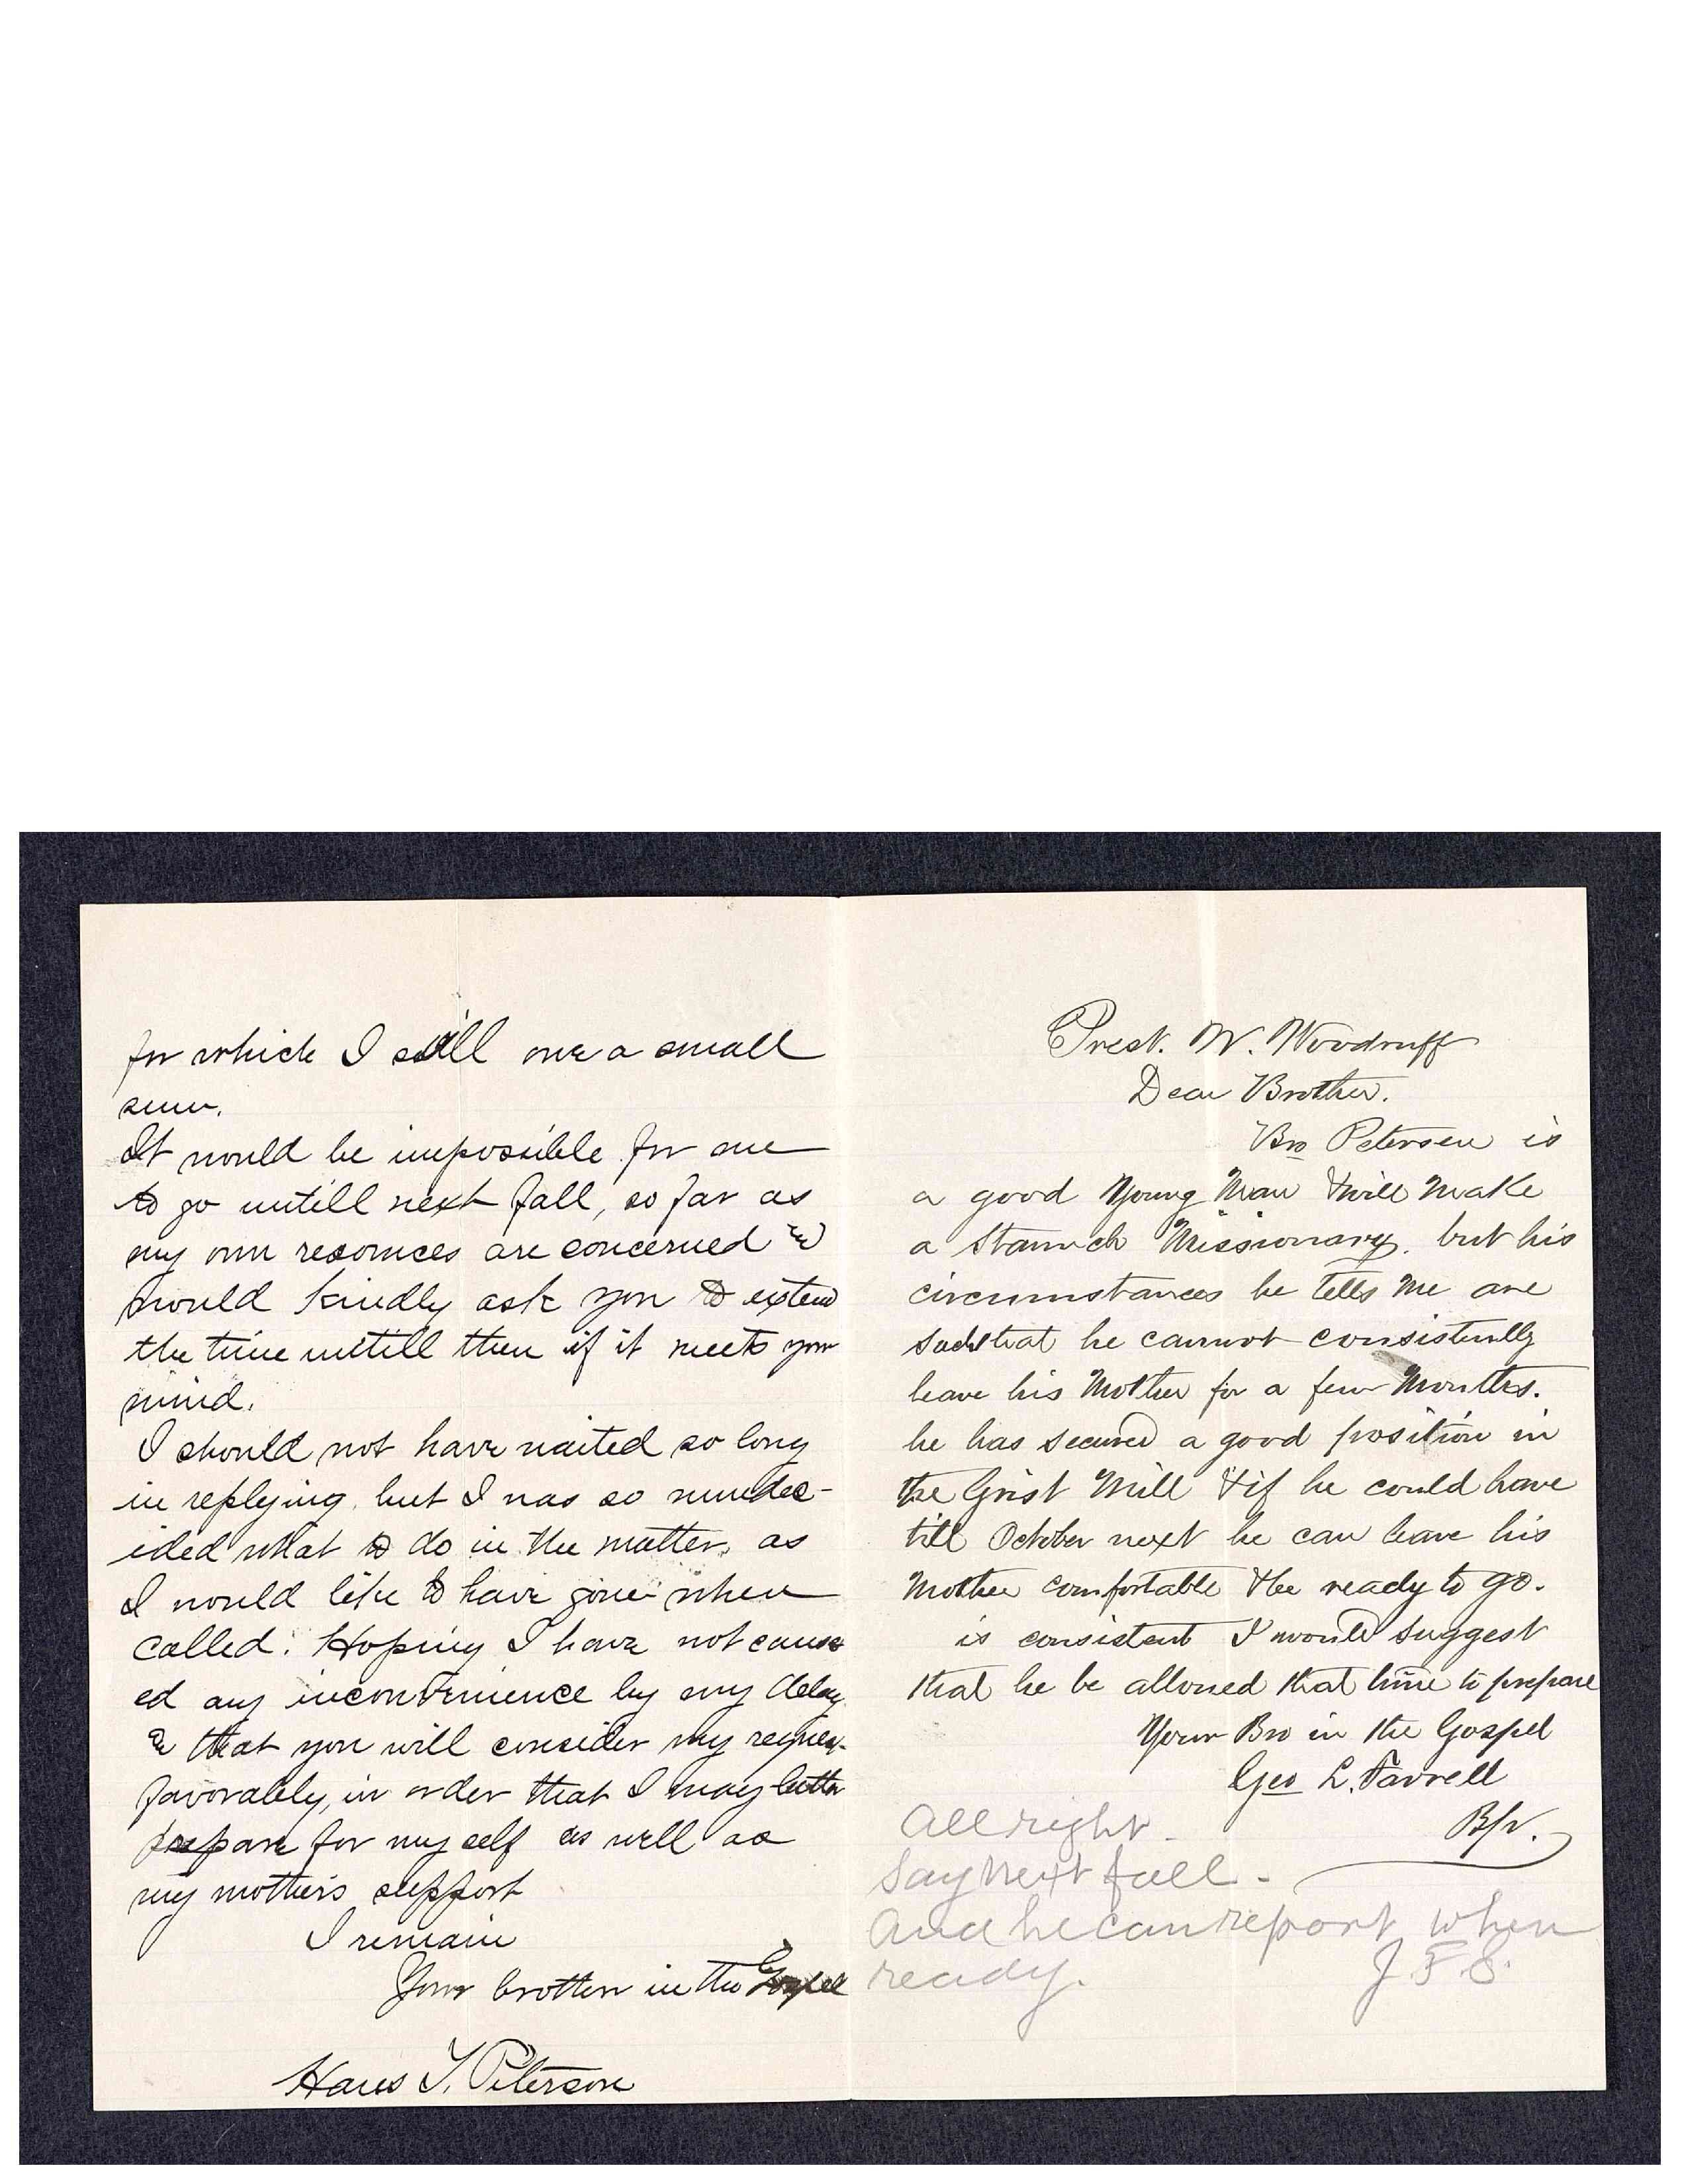 for which I still owe a small
sum.
It would be impossible for me
to go untill next fall, so far as
my own resources are concerned &
would kindly ask you to extend
the time untill then if it meets your
mind.
I should not have waited so long
in replying, but I was so undec-
ided what to do in the matter, as
I would like to have gone when
called. Hoping I have not caus
ed any inconvenience by my delay
& that you will consider my reques
favorably, in order that I may better
prepare for my self as well as
my mothers support
I remain
Your brother in the Gospel
Hans J. Peterson
Prest. W. Woodruff
Dear Brother.
Bro Petersen is
a good Young Man & will Make
a Staunch Missionary. but his
circumstances he tells me are
such that he cannot consistently
leave his Mother for a few Months.
he has secured a good position in
the Grist Mill & if he could have
till October next he can leave his
Mother comfortable & be ready to go.
is consistent I would Suggest
that he be allowed that time to prepare
Your Bro in the Gospel
Geo L. Farrell
Bp.
All right -
Say next fall -
and he can report when
ready. J. F. S.